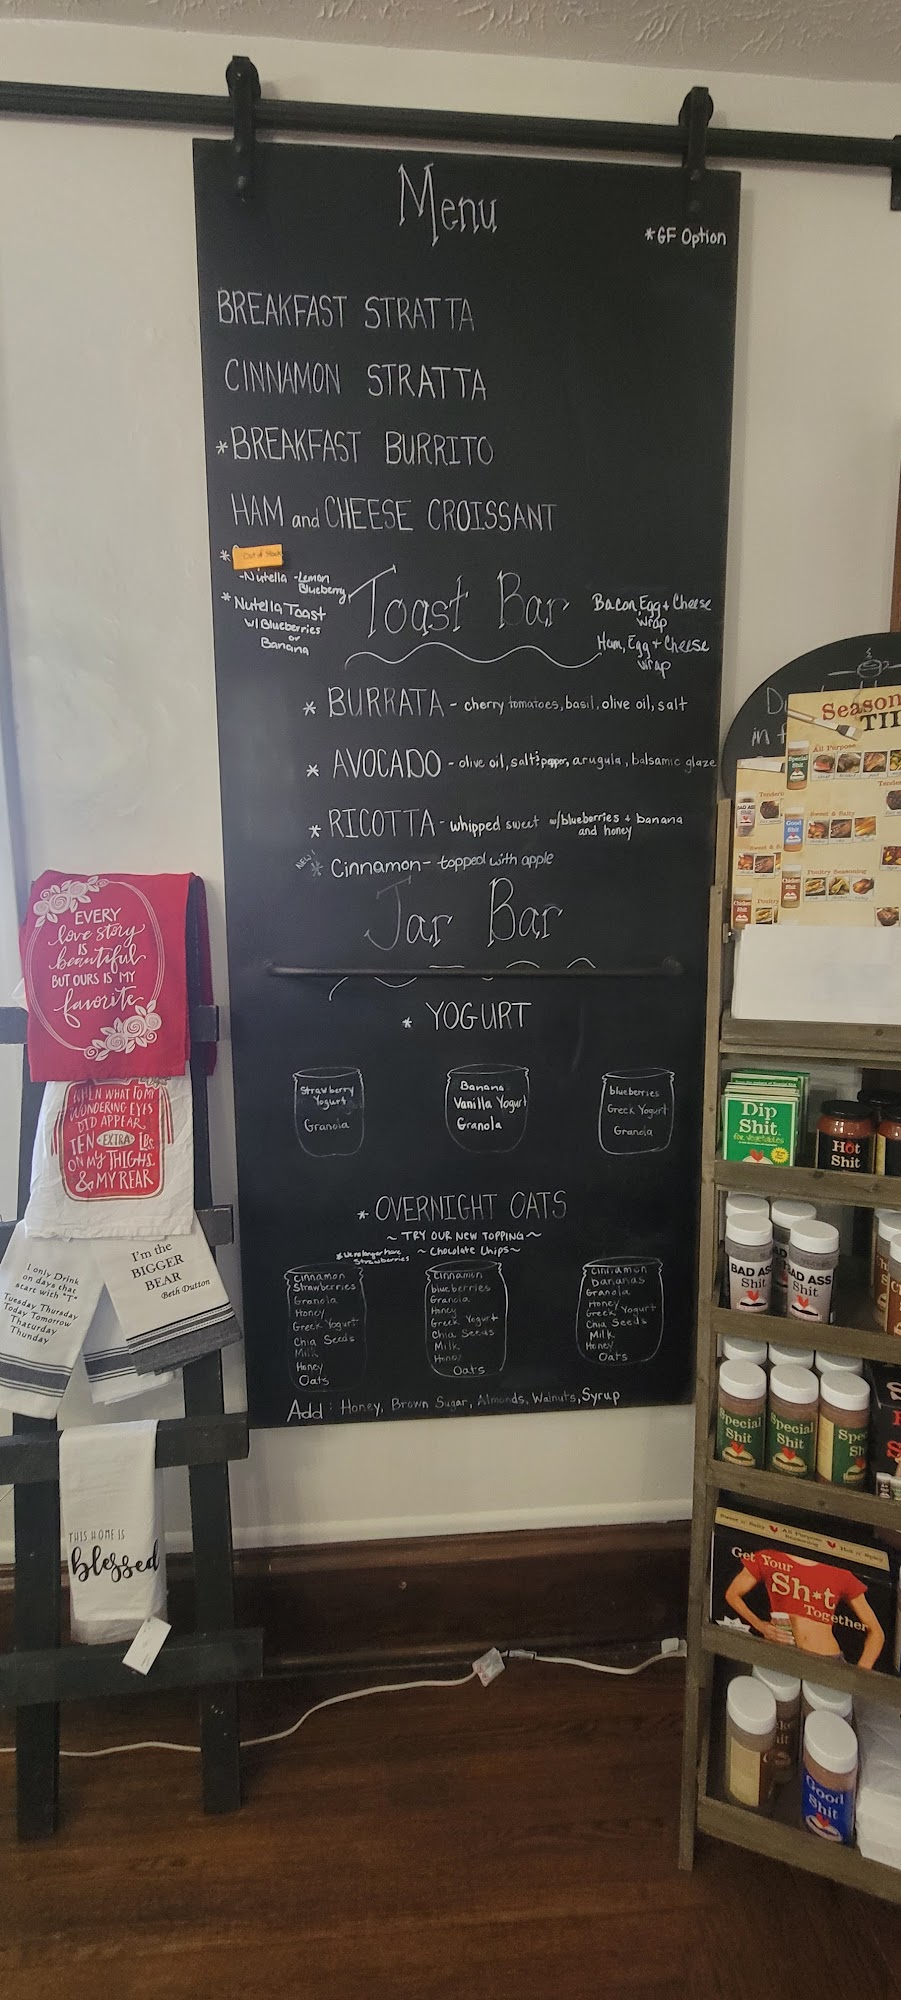 Menu
*GF Option
BREAKFAST STRATTA
CINNAMON STRATTA
*BREAKFAST BURRITO
HAM and CHEESE CROISSANT
*
Out of Stock
-Nutella -Lemon
Blueberry
*Nutella Toast
w/Blueberries
or
Banana
Toast Bar
Bacon, Egg + Cheese
wrap
Ham, Egg + Cheese
wrap
* BURRATA - cherry tomatoes, basil, olive oil, salt
* AVOCADO - olive oil, salt & pepper, arugula, balsamic glaze
* RICOTTA - whipped sweet w/blueberries + banana
and honey
NEW!
* Cinnamon - topped with apple
Jar Bar
* YOGURT
Strawberry
Yogurt
Granola
Banana
Vanilla Yogurt
Granola
blueberries
Greek Yogurt
Granola
* OVERNIGHT OATS
~ TRY OUR NEW TOPPING ~
~ Chocolate Chips ~
*We no longer have
Strawberries
Cinnamon
Strawberries
Granola
Honey
Greek Yogurt
Chia Seeds
Milk
Honey
Oats
Cinnamon
blueberries
Granola
Honey
Greek Yogurt
Chia Seeds
Milk
Honey
Oats
Cinnamon
Bananas
Granola
Honey
Greek Yogurt
Chia Seeds
Milk
Honey
Oats
Add: Honey, Brown Sugar, Almonds, Walnuts, Syrup
EVERY
love story
IS
beautiful
BUT OURS IS MY
favorite
WHEN WHAT TO MY
WONDERING EYES
DID APPEAR
TEN EXTRA LBS
ON MY THIGHS
& MY REAR
I only Drink
on days that
start with "T"
Tuesday Thursday
Today Tomorrow
Thaturday
Thunday
I'm the
BIGGER
BEAR
Beth Dutton
THIS HOME IS
blessed
in f
Season
TI
All Purpose
Special
Shit
Sweet & Salty
Good
Shit
Poultry Seasoning
Chicken
Shit
Dip
Shit
for vegetables
Hot
Shit
BAD ASS
BAD ASS
Special
Shit
Special
Shit
Spe
Sh
Sweet n' Salty
All Purpose
Seasoning
Hot n' Spicy
Get Your
Sh*t
Together
Good
Shit